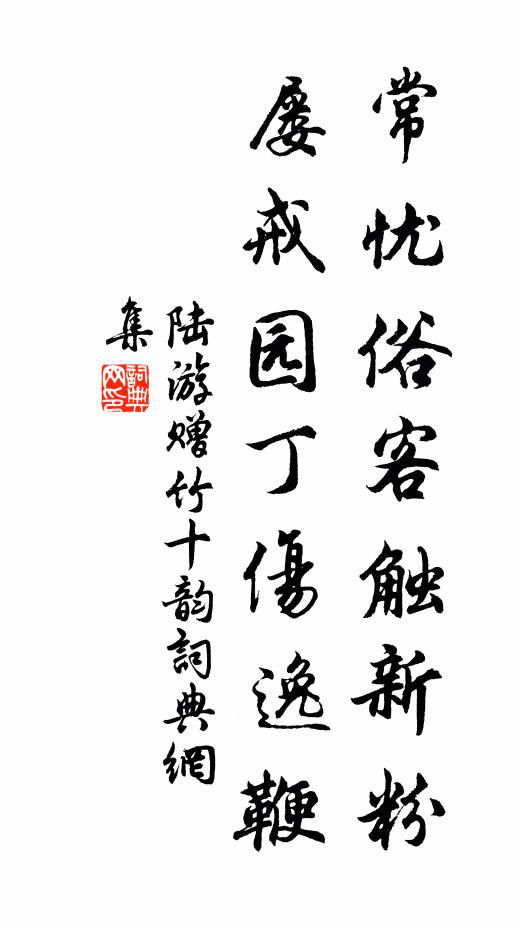 常忧俗客触新粉
屡戒园丁傷逸鞭
陆游赠竹十韵詞典網
集
詞典
网印